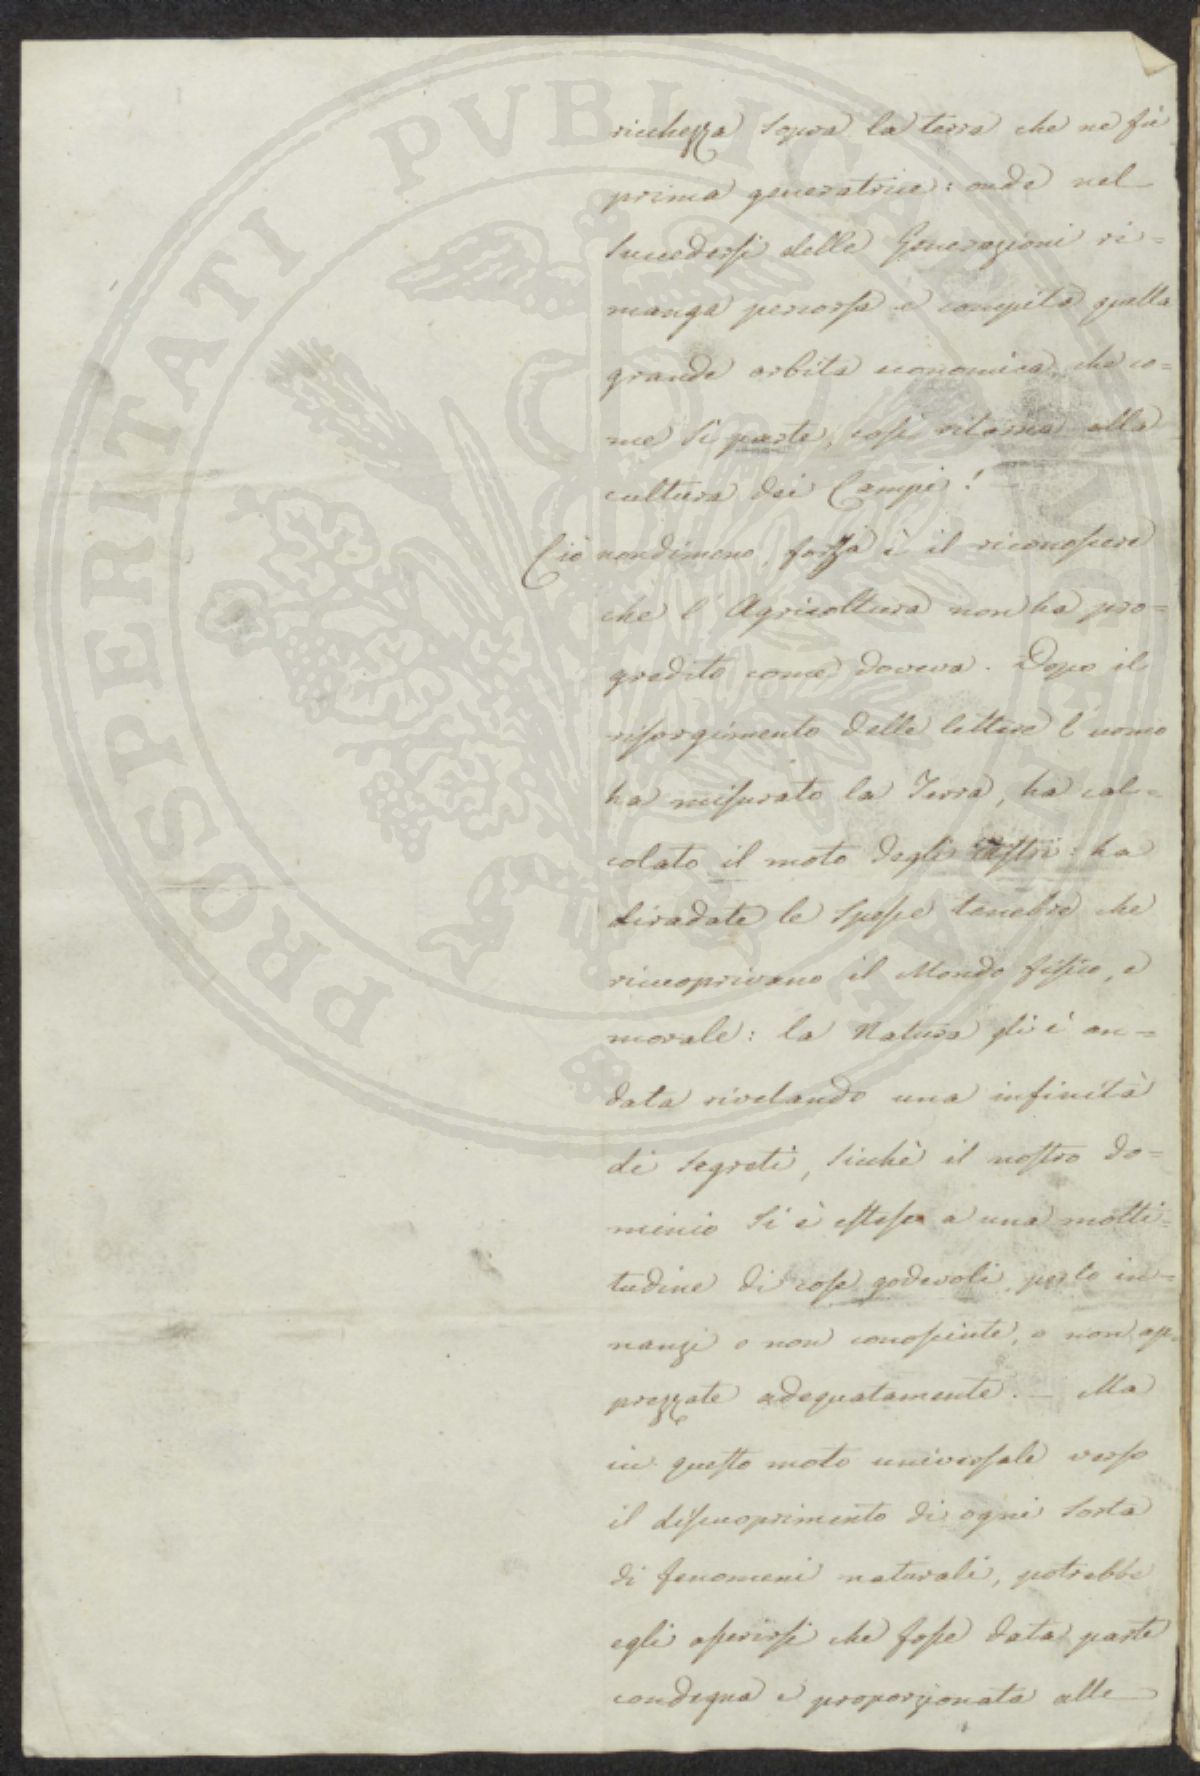 ricchezza sopra la terra che ne fù
prima generatrice: onde nel
succedersi delle Generazioni ri=
manga percorsa e compita quella
grande orbita economica, che co=
me si parte, così ritorna alla
cultura dei Campi!
Ciò nondimeno, forza è il riconoscere
che l'Agricoltura non ha pro=
gredito come doveva. Dopo il
risorgimento delle lettere l'uomo
ha misurato la Terra, ha cal=
colato il moto degli astri: ha
diradate le spesse tenebre che
riccoprivano il Mondo fisico, e
morale: la Natura gli è an=
data rivelando una infinità
di segreti, sicchè il nostro do=
minio si è esteso a una molti=
tudine di cose godevoli, per lo in=
nanzi o non conosciute, o non ap=
prezzate adequatamente. – Ma
in questo moto universale verso
il discuoprimento di ogni sorta
di fenomeni naturali, potrebbe
egli asserirsi che fosse data parte
condegna e proporzionata alle
PROSPERITATI PVBLICAE AVGENDAE